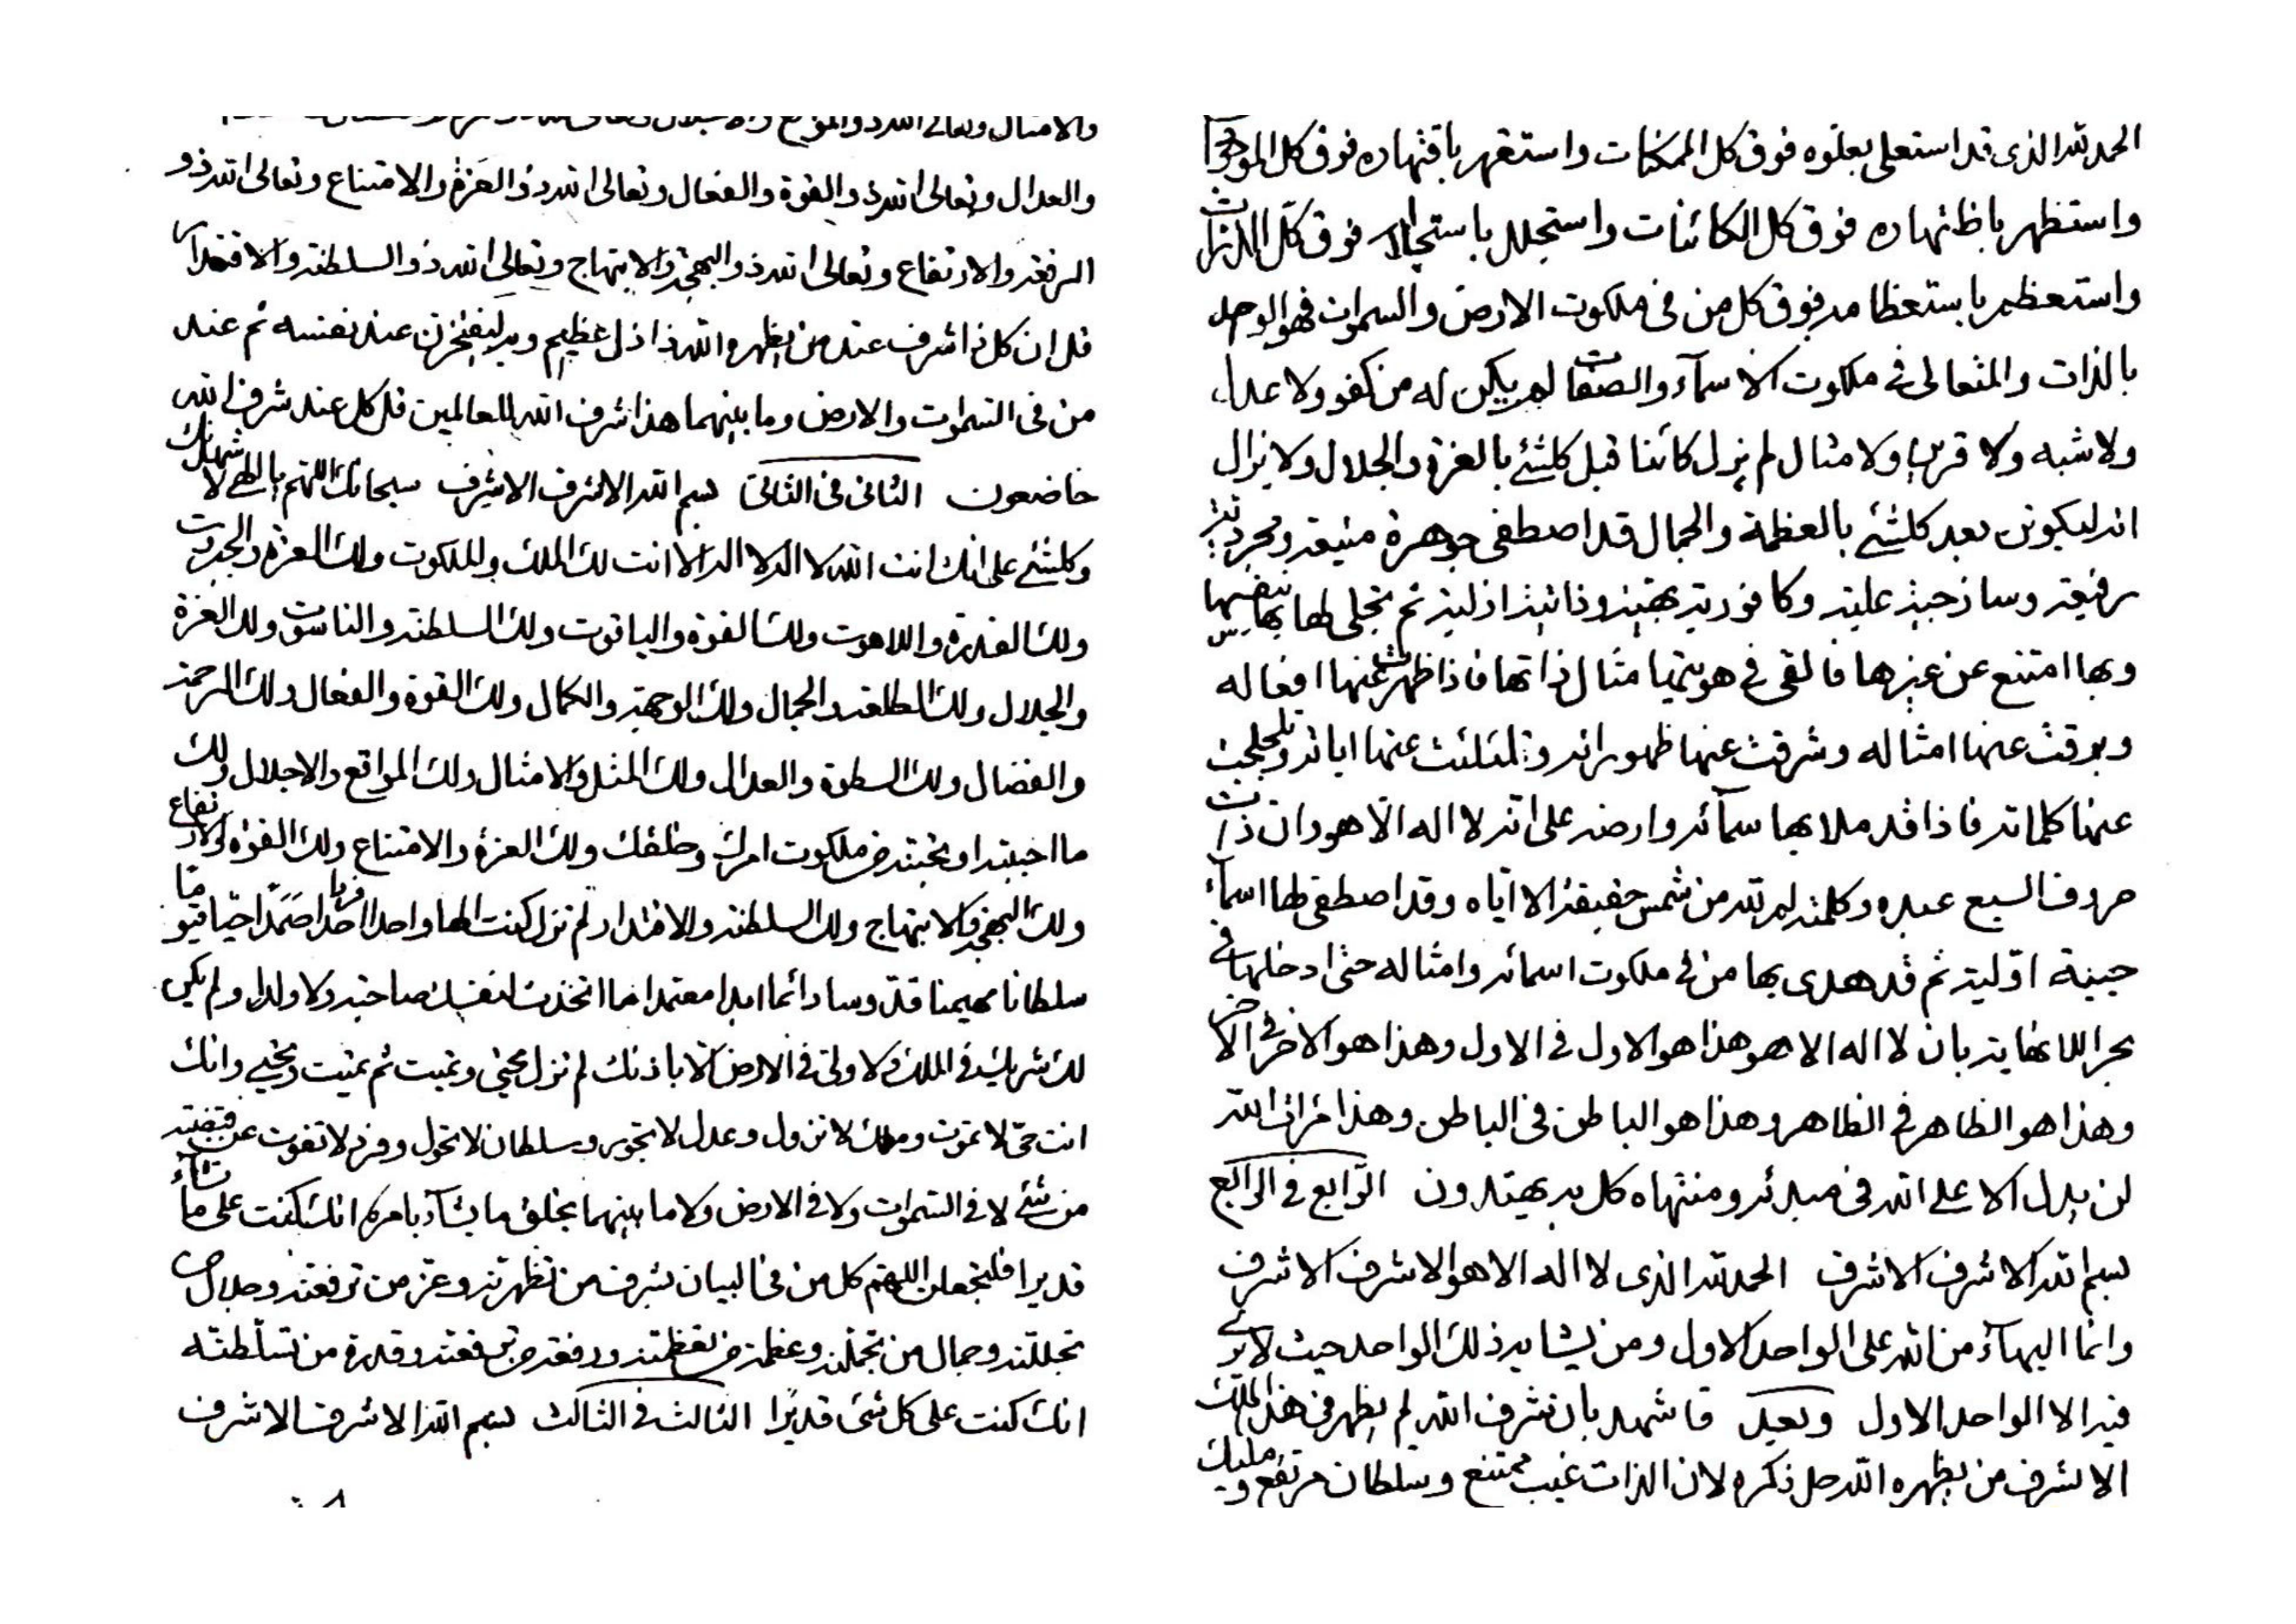 الحمد لله الذى قد استعلى بعلوه فوق كل الممكنات واستقهر باقتهاره فوق كل الموجودات
واستظهر باظتهاره فوق كل الكائنات واستجلل باستجلاله فوق كل الذرات
واستعظم باستعظامه فوق كل من فى ملكوت الارض والسموات فهو الوحد
بالذات والمتعالى فى ملكوت الاسمآء والصفات لم يكن له من كفو ولا عدل
ولا شبه ولا قرين ولا مثال لم يزل كائنا قبل كلشئ بالعزة والجلال ولا يزال
انه ليكونن بعد كلشئ بالعظمة والجمال قد اصطفى جوهرة منيعة ومجردة
رفيعة وساذجية علية وكافورية بهية وذاتية ازلية ثم تجلى لها بها بنفسها
وبها امتنع عن غيرها فالقى فى هويتها مثال ذاتها فاذا ظهرت عنها افعاله
وبرقت عنها امثاله وشرقت عنها ظهوراته وتلئلئت عنها اياته وتلجلجت
عنها كلماته فاذا قد ملا بها سمآئه وارضه على انه لا اله الا هو وان ذات
حروف السبع عبده وكلمته لم تر من شمس حقيقة الا اياه وقد اصطفى لها اسمآء
حيية اولية ثم قد هدى بها من فى ملكوت اسمائه وامثاله حتى ادخلها فى
بحر اللانهاية بان لا اله الا هو هذا هو الاول فى الاول وهذا هو الاخر فى الاخر
وهذا هو الظاهر فى الظاهر وهذا هو الباطن فى الباطن وهذا مرات الله
لن يدل الا على الله فى مبدئه ومنتهاه كل به يهتدون الرابع فى الرابع
بسم الله الاشرف الاشرف الحمد لله الذى لا اله الا هو الاشرف الاشرف
وانما البهآء من الله على الواحد الاول ومن يشابه ذلك الواحد حيث لا يرى
فيه الا الواحد الاول وبعد فاشهد بان شرف الله لم يظهر فى هذا الملك
الا بشرف من يظهره الله جل ذكره لان الذات غيب ممتنع وسلطان مرتفع ومليك
والعدال وتعالى الله ذو القوة والفعال وتعالى الله ذو العزة والامتناع وتعالى الله ذو
الرفعة والارتفاع وتعالى الله ذو البهجة والابتهاج وتعالى الله ذو السلطنة والاقتدار
قل ان كل ذا شرف عند من يظهره الله ذا ذل عظيم وبه ليفتخرن عند نفسه ثم عند
من فى السموات والارض وما بينهما هذا شرف الله للعالمين قل كل عند شرف الله
خاضعون الثانى فى الثانى بسم الله الاشرف الاشرف سبحانك اللهم يا الهى لاشهدنك
وكلشئ على انك انت الله لا اله الا انت لك الملك والملكوت ولك العزة والجبروت
ولك القدرة واللاهوت ولك القوة والياقوت ولك السلطنة والناسوت ولك العزة
والجلال ولك الطلعة والجمال ولك الوجهة والكمال ولك القوة والفعال ولك الرحمة
والفضال ولك السطوة والعدال ولك المثل والامثال ولك المواقع والاجلال ولك
ما احببته او تحبه من ملكوت امرك وخلقك ولك العزة والامتناع ولك القوة والارتفاع
ولك البهجة والابتهاج ولك السلطنة والاقتدار لم تزل كنت الها واحدا احدا فردا صمدا حيا قيوما
سلطانا مهيمنا قدوسا دائما ابدا معتمدا ما اتخذت لنفسك صاحبة ولا ولدا ولم يكن
لك شريك فى الملك ولا ولى فى الارض الا باذنك لم تزل تحيى وتميت ثم تميت وتحيى وانك
انت حى لا تموت وملك لا تزول وعدل لا تجور وسلطان لا تحول وفرد لا تفوت عن قبضتك
من شئ لا فى السموات ولا فى الارض ولا ما بينهما تخلق ما يشآء بامرك انك كنت على ما تشآء
قديرا فلتجعلن اللهم كل من فى البيان بشرف من تظهرنه وعز من ترفعنه وجلال من
تجللنه وجمال من تجملنه وعظمة من تعظمنه ورفعة من ترفعنه وقدرة من تسلطنه
انك كنت على كل شئ قديرا الثالث فى الثالث بسم الله الاشرف الاشرف